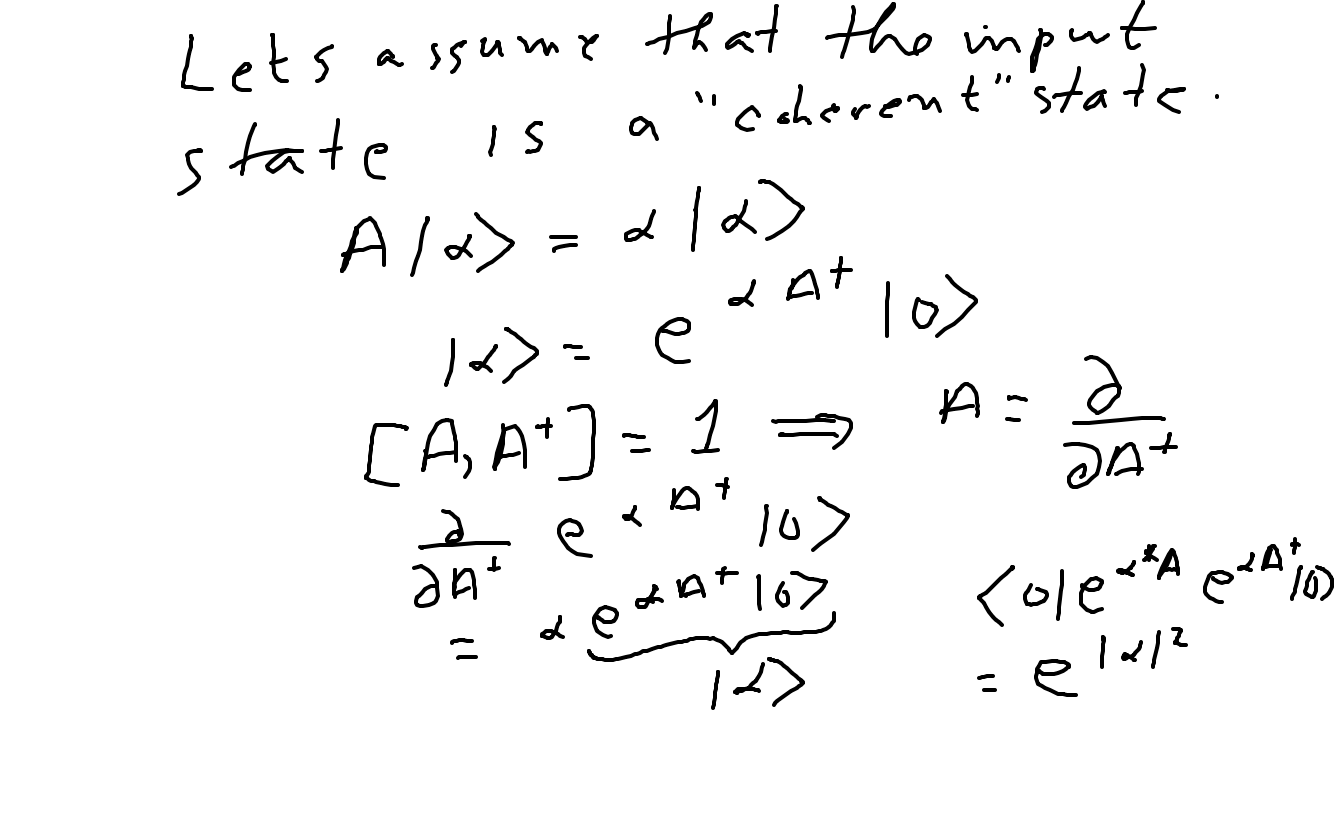 Lets assume that the input
state is a "coherent" state.
A|α⟩ = α|α⟩
|α⟩ = e^{αA†}|0⟩
[A, A†] = 1 ⟹ A = ∂/∂A†
∂/∂A† e^{αA†}|0⟩
= α e^{αA†}|0⟩
|α⟩
⟨0|e^{α*A} e^{αA†}|0⟩
= e^{|α|²}